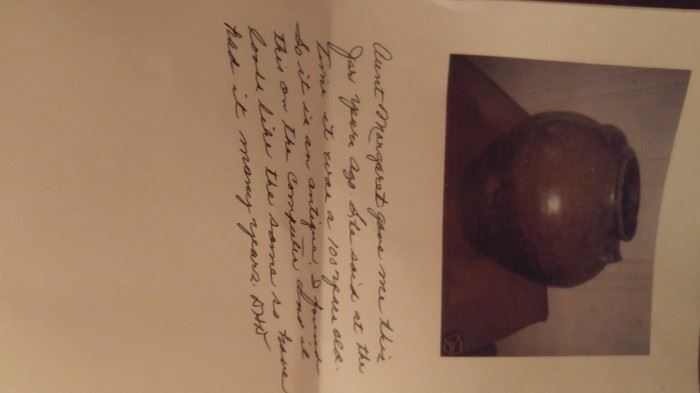 Aunt Margaret gave me this
Jar years ago. She said at the
time it was a 100 years old.
So it is an antique. I found
this on the computer and it
looks like the same so have
had it many years.